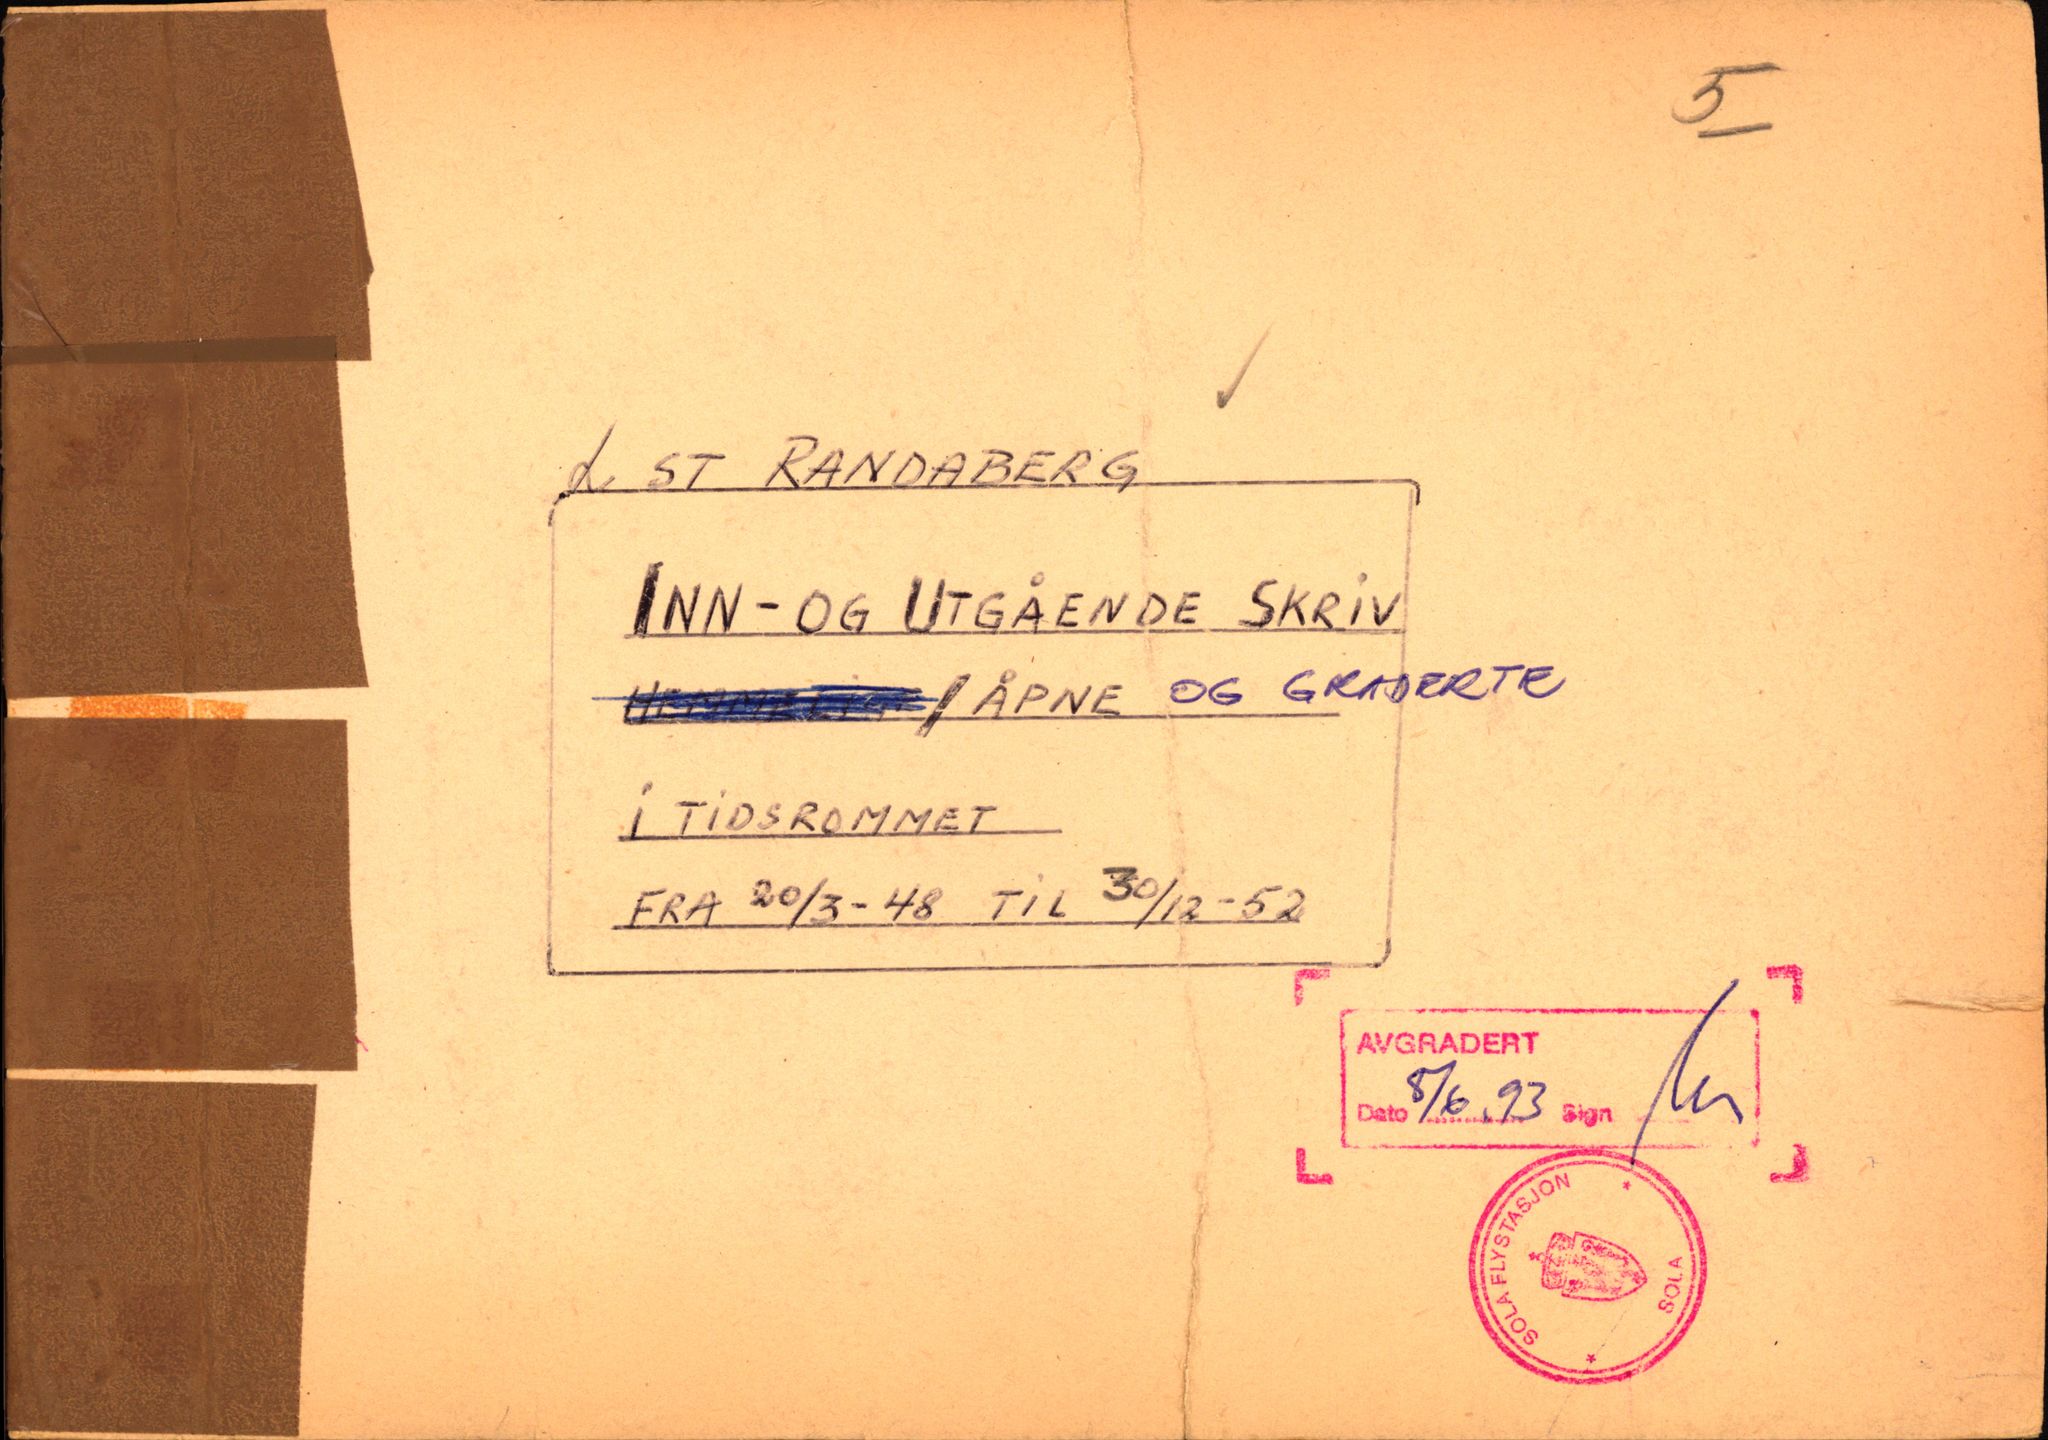 5
L ST RANDABERG
INN-OG UTGÅENDE SKRIV
HEMMELIGE / ÅPNE OG GRADERTE
i TIDSROMMET
FRA 20/3-48 TIL 30/12-52
AVGRADERT
Dato 8/6.93 Sign
SOLA FLYSTASJON
SOLA